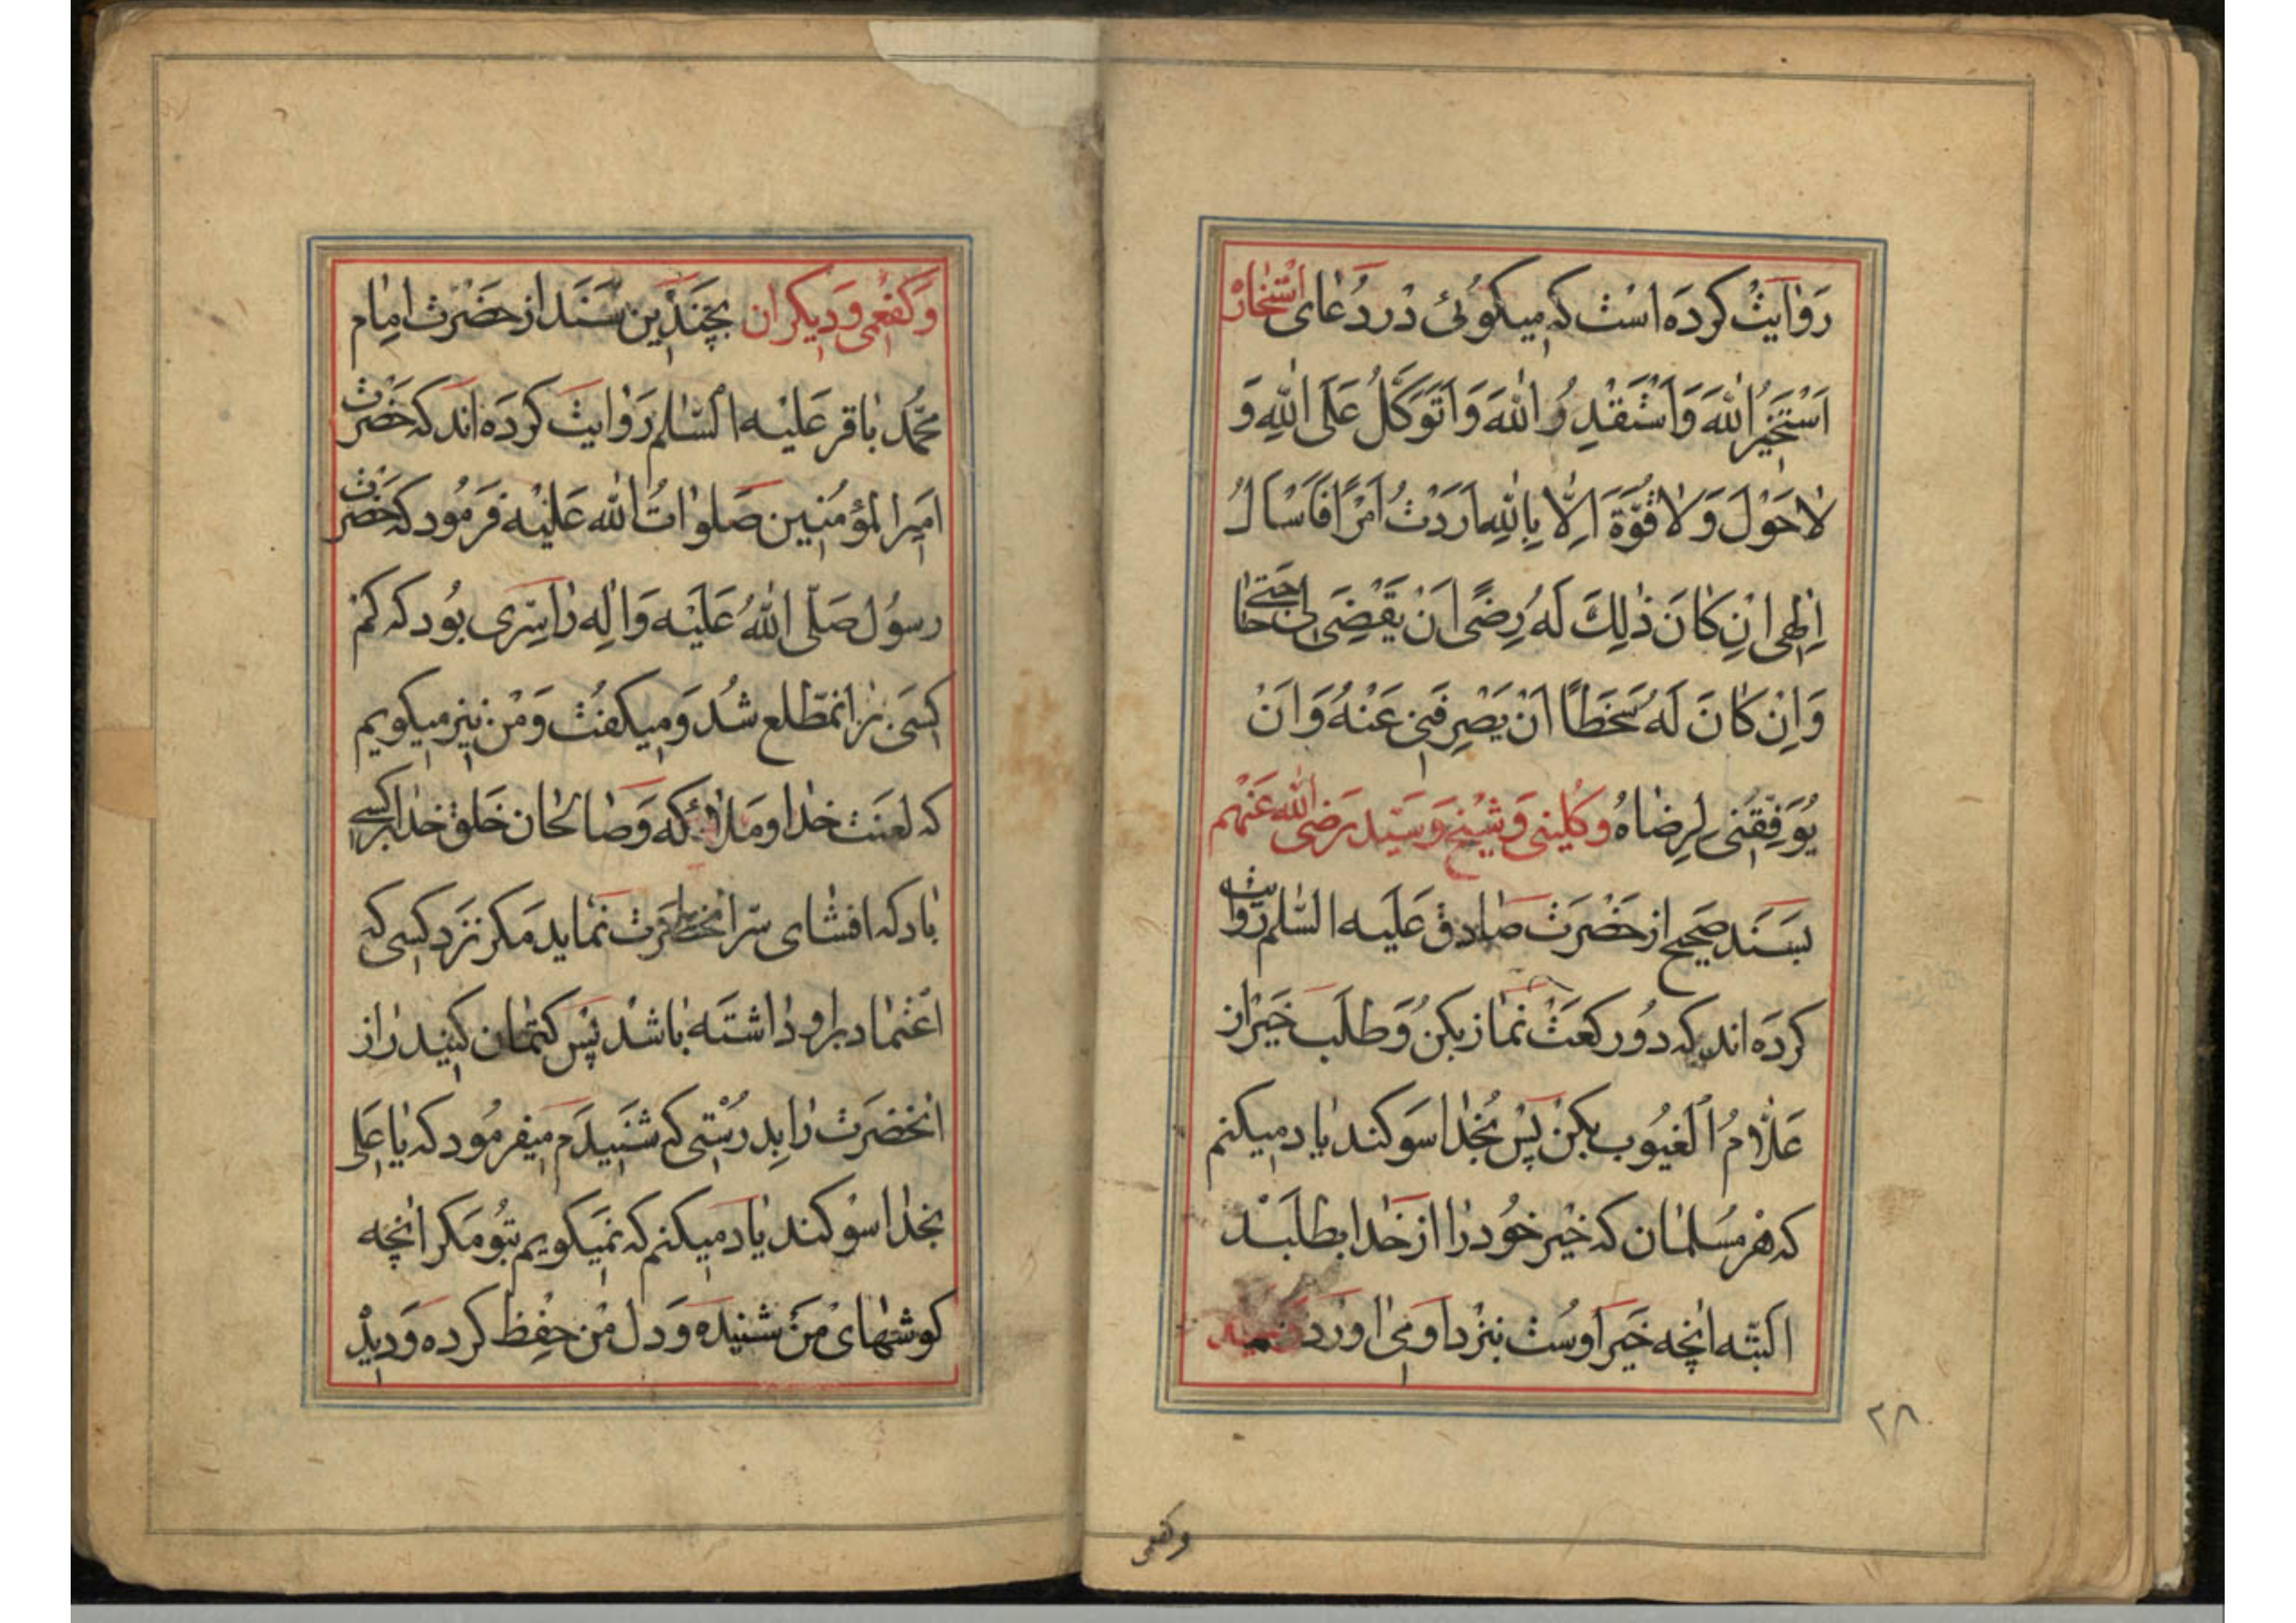 رَوٰایَتْ کردَه اسْت که میکوُئی دْردُعٰای اسْتخٰارْ
اَسْتَخیرُ اللهَ وَاَسْتَقْدِرُ اللهَ وَاَتَوَکَّلُ عَلَی اللهِ وَ
لاٰحَوْلَ وَلاٰ قُوَّةَ اِلّٰا بِاللهِ اَرَدْتُ اَمْرًا فَاَسْاَلُ
اِلٰهی اِنْ کٰانَ ذٰلِكَ لَهُ رِضًی اَنْ یَقْضِیَ لی حٰاجَتی
وَاِنْ کٰانَ لَهُ سَخَطًا اَنْ یَصْرِفَنی عَنْهُ وَاَنْ
یُوَفِّقَنی لِرِضٰاهُ وَکلُینی وَشَیْخ وَسَیّد رَضی اللهُ عَنْهم
بسَنَد صَحیح از حَضْرَت صٰادِق عَلَیه السّلٰم رَوٰایت
کردَه اند که دوُ رکعَتْ نمٰاز بکنُ وَطلَب خَیر از
عَلاّٰمُ الغیُوب بکنْ پَسْ بخُدٰا سَوکند یٰاد میکنم
که هر مسُلمٰان که خَیْر خوُد رٰا از خَدٰا بطلَبَدْ
البتّه انچه خَیر اوسُت بنزْد او می اورَد
وکفعمی
۲۸
وَکفعَمی وَدیکران بچَندَین سَنَد از حَضْرَت امِٰام
محمّد بٰاقر عَلیْه السّلٰم رَوٰایتَ کردَه اند که حَضْرَت
امیرالمؤمُنین صَلوٰاتُ الله عَلیْه فَرمُود که حَضْرَت
رسوُل صَلَّی اللهُ عَلَیْه وَاٰلِه رٰا سِرّی بوُد که کمَ
کسَی بَر انمطّلع شُد وَمیکفتُ وَمْن نیز میکویم
که لعنَت خدٰا ومَلاٰئکه وَصٰالحٰان خَلق خدٰا بَر کسی
بٰاد که افشٰای سّر انحضرَت نمَاید مَکر نَزد کسی که
اعْتمٰاد بر او دٰاشتَه بٰاشدْ پَس کتمٰان کنید رٰاز
انحَضرَت رٰا بِدرُسْتی که شنَیدَم میَفرمُود که یٰا عَلی
بخدٰا سوْکند یٰاد میَکنم که نمیَکویم بتوُ مَکر انچه
کوشهٰای مْن شنیدَه وَدل مْن حِفْظ کردَه وَدیدْ